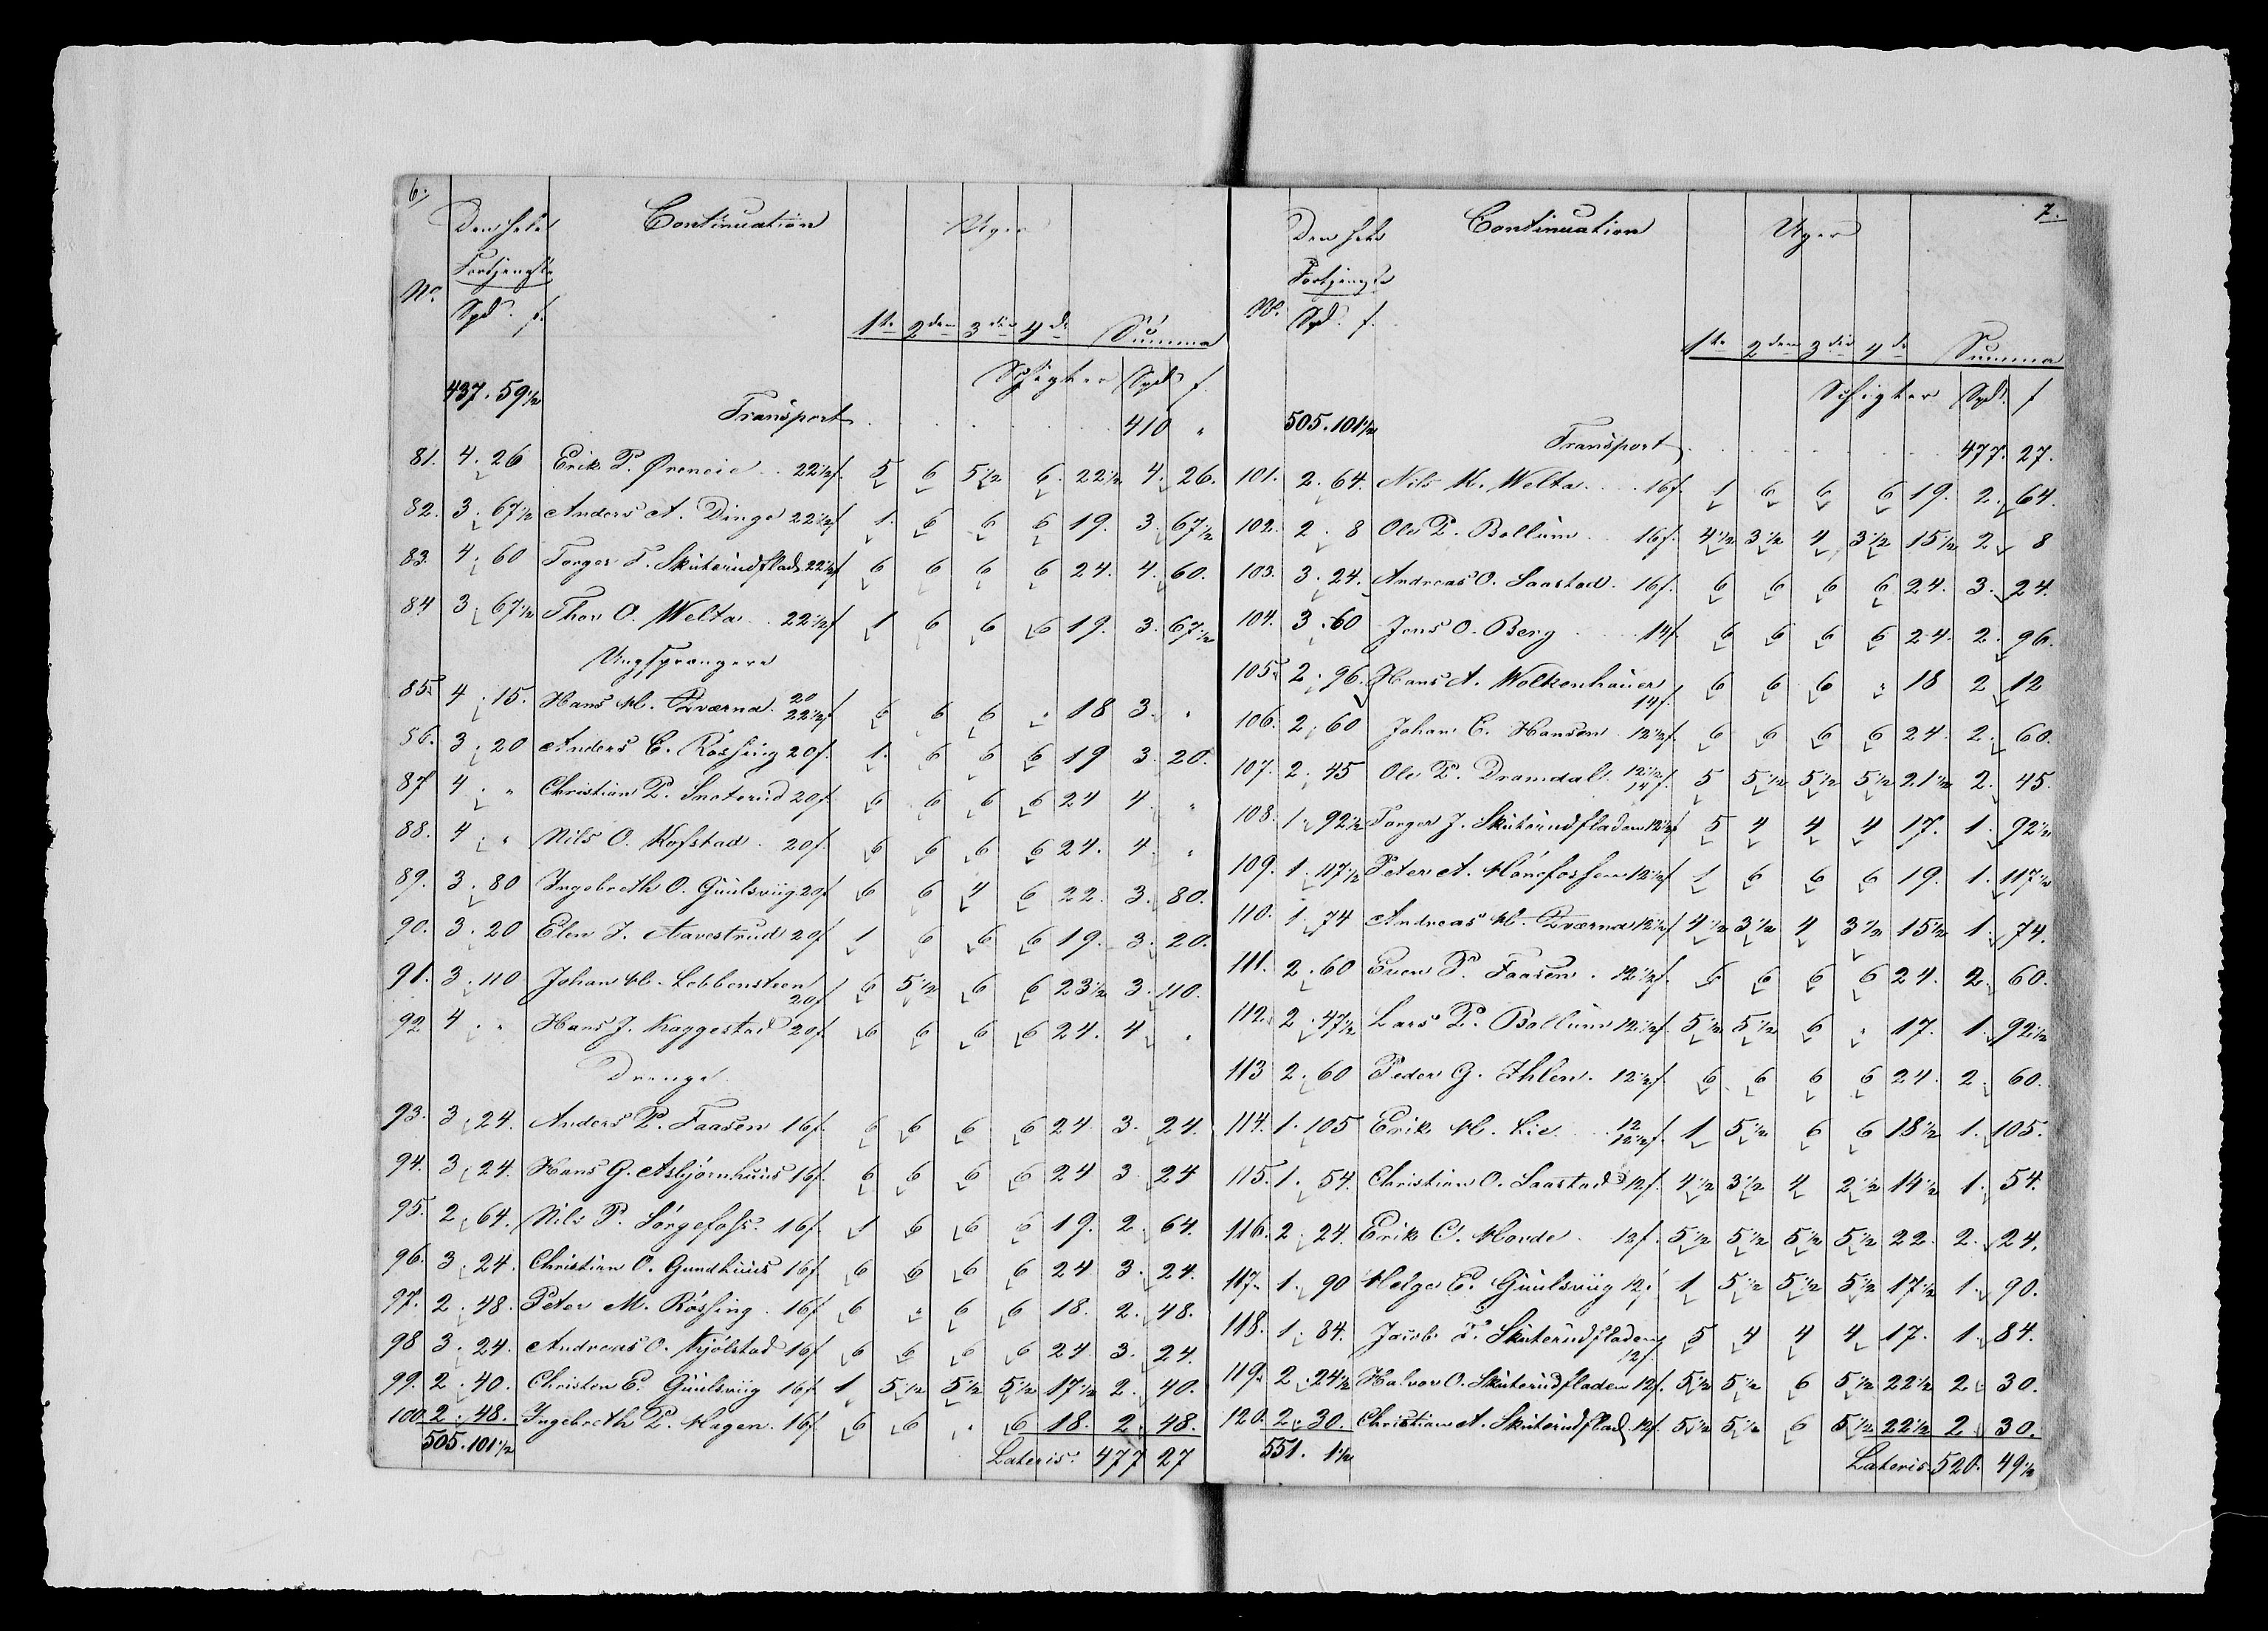 6.
Den hele Continuation Uger
Fortjeneste
No. Spd. s. 1te 2den 3die 4de Summa
Schigter Spd. s.
437. 59 1/2 Transport 410 "
81. 4. 26 Erik P. Ørencie 22 1/2 s. 5 6 5 1/2 6 22 1/2 4. 26.
82. 3. 67 1/2 Anders A. Dinge 22 1/2 s. 1. 6 6 6 19. 3. 67 1/2
83. 4. 60 Torger T. Skuterudflad. 22 1/2 s. 6 6 6 6 24. 4. 60.
84 3. 67 1/2 Thor O. Welta 22 1/2 s. 1 6 6 6 19. 3. 67 1/2
Ungsprængere
85. 4. 15. Hans M. Qværna 20 22 1/2 s. 6 6 6 " 18 3. "
56. 3. 20 Anders C. Røssing 20 s. 1. 6 6 6 19 3. 20.
87 4. " Christian P. Snoterud 20 s. 6 6 6 6 24 4. "
88. 4. " Nils O. Kofstad 20 s. 6 6 6 6 24. 4. "
89. 3. 80 Ingebreth O. Guulsviig 20 s. 6 6 4 6 22. 3. 80.
90. 3. 20 Elen J. Aavestrud 20 s. 1 6 6 6 19. 3. 20.
91. 3. 110 Johan M. Lobbensteen 20 s. 6 5 1/2 6 6 23 1/2 3. 110.
92 4. " Hans J. Kaggestad 20 s. 6 6 6 6 24. 4 "
Drenge
93. 3. 24. Anders P. Faasen 16 s. 6 6 6 6 24 3. 24.
94. 3. 24. Hans G. Asbjørnhuus 16 s. 6 6 6 6 24 3. 24
95. 2. 64. Nils P. Sørgefoss. 16 s. 1 6 6 6 19. 2. 64.
96. 3. 24. Christian O. Gundhuus 16 s. 6 6 6 6 24 3. 24.
97. 2. 48. Peter M. Røssing. 16 s. 6 " 6 6 18. 2. 48.
98 3. 24. Andreas O. Kjølstad 16 s. 6 6 6 6 24 3. 24.
99. 2. 40. Christen E. Guulsviig 16 s. 1 5 1/2 5 1/2 5 1/2 17 1/2 2. 40.
100. 2. 48. Ingebreth P. Hagen. 16 s. 6 6 " 6 18. 2. 48.
505. 101 1/2 Lateris. 477 27
7.
Den hele Continuation Uger
Fortjeneste
No. Spd. s. 1te 2den 3die 4de Summa
Schigter Spd. s
505. 101 1/2 Transport 477. 27.
101. 2. 64. Nils K. Welta 16 s. 1 6 6 6 19. 2. 64.
102. 2. 8 Ole P. Bollum 16 s. 4 1/2 3 1/2 4 3 1/2 15 1/2 2. 8
103. 3. 24. Andreas O. Saastad. 16 s. 6 6 6 6 24. 3. 24.
104. 3. 60 Jens O. Berg 14 s. 6 6 6 6 24. 2. 96.
105. 2. 96. Hans A. Wolkenhauer 14 s. 6 6 6 " 18 2 12
106. 2. 60 Johan C. Hansen 12 1/2 s. 6 6 6 6 24. 2. 60.
107. 2. 45 Ole P. Dramdal. 12 1/2 14 s. 5 5 1/2 5 1/2 5 1/2 21 1/2 2. 45.
108. 1. 92 1/2 Torger J. Skuterudfladen 12 1/2 s. 5 4 4 4 17. 1. 92 1/2
109. 1. 117 1/2 Peter A. Hønefossen 12 1/2 s. 1 6 6 6 19. 1. 117 1/2
110. 1. 74 Andreas M. Qværna 12 1/2 s. 4 1/2 3 1/2 4 3 1/2 15 1/2 1. 74.
111. 2. 60 Even P. Faasen. 12 1/2 s. 6 6 6 6 24. 2. 60.
112. 2. 47 1/2 Lars P. Bollum 12 1/2 s. 5 1/2 5 1/2 6 " 17. 1. 92 1/2
113 2. 60 Peder G. Ihlen. 12 1/2 s. 6 6 6 6 24. 2. 60.
114. 1. 105 Erik M. Lie 12 12 1/2 s. 1 5 1/2 6 6 18 1/2 1. 105.
115. 1. 54. Christian O. Saastad 12 s. 4 1/2 3 1/2 4 2 1/2 14 1/2 1. 54.
116. 2. 24. Erik C. Hovde 12 s. 5 1/2 5 1/2 5 1/2 5 1/2 22. 2. 24.
117. 1. 90 Helge E. Guulsviig 12 s. 1 5 1/2 5 1/2 5 1/2 17 1/2 1. 90.
118. 1. 84. Jacob T. Skuterudfladen 12 s. 5 4 4 4 17. 1. 84.
119. 2. 24 1/2 Halvor O. Skuterudfladen 12 s. 5 1/2 5 1/2 6 5 1/2 22 1/2 2 30.
120. 2. 30. Christian A. Skuterudflad. 12 s. 5 1/2 5 1/2 6 5 1/2 22 1/2 2 30.
551. 1 1/2 Lateris. 520. 49 1/2